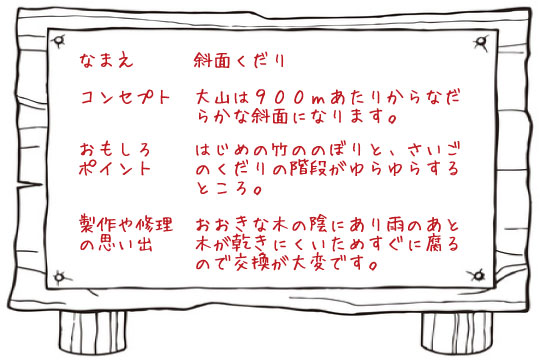 なまえ 斜面くだり
コンセプト 大山は９００ｍあたりからなだ
らかな斜面になります。
おもしろ はじめの竹ののぼりと、さいご
ポイント のくだりの階段がゆらゆらする
ところ。
製作や修理 おおきな木の陰にあり雨のあと
の思い出 木が乾きにくいためすぐに腐る
ので交換が大変です。